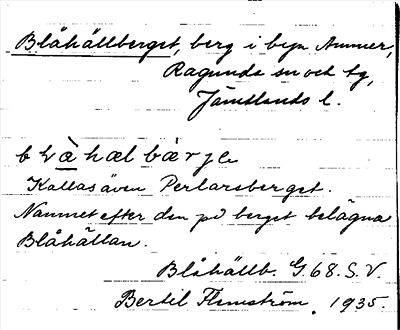 Blåhällberget, berg i byn Ammer,
Ragunda sn och tg,
Jämtlands l.
blàhælbærje
Kallas även Perlarsberget.
Namnet efter den på berget belägna
Blåhällan.
Blåhällb. G. 68. S. V.
Bertil Flemström. 1935.